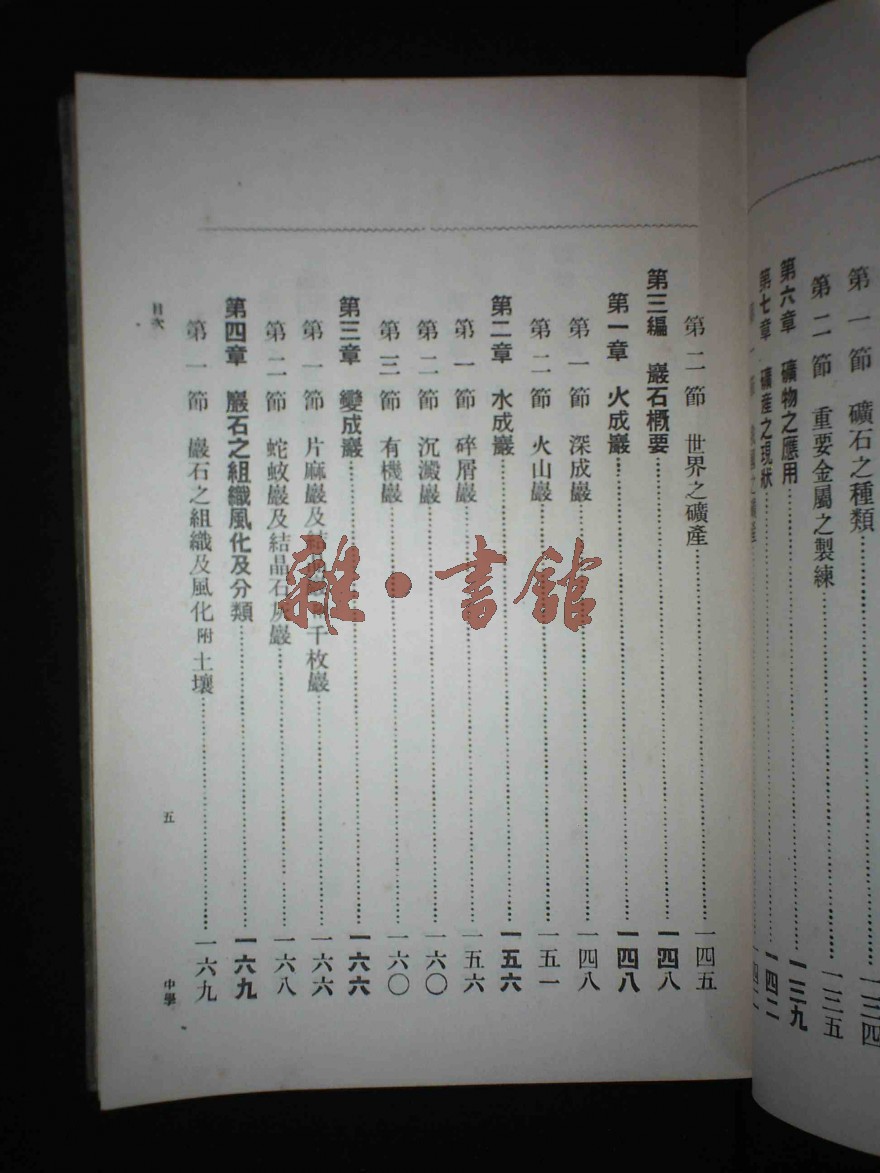 第一節 礦石之種類 一三四
第二節 重要金屬之製練 一三五
第六章 礦物之應用 一三九
第七章 礦產之現狀 一四二
第二節 世界之礦產 一四五
第三編 巖石概要 一四八
第一章 火成巖 一四八
第一節 深成巖 一四八
第二節 火山巖 一五一
第二章 水成巖 一五六
第一節 碎屑巖 一五六
第二節 沉澱巖 一六〇
第三節 有機巖 一六〇
第三章 變成巖 一六六
第一節 片麻巖及結晶 千枚巖 一六六
第二節 蛇蚊巖及結晶石灰巖 一六八
第四章 巖石之組織風化及分類 一六九
第一節 巖石之組織及風化 附 土壤 一六九
目次
五
中學
雜·書館